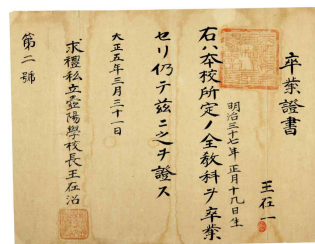 卒業證書
王在一
明治三十七年正月十九日生
右ハ本校所定ノ全敎科ヲ卒業
セリ仍テ茲ニ之ヲ證ス
大正五年三月三十一日
求禮私立壺陽學校長王在沼
第二號